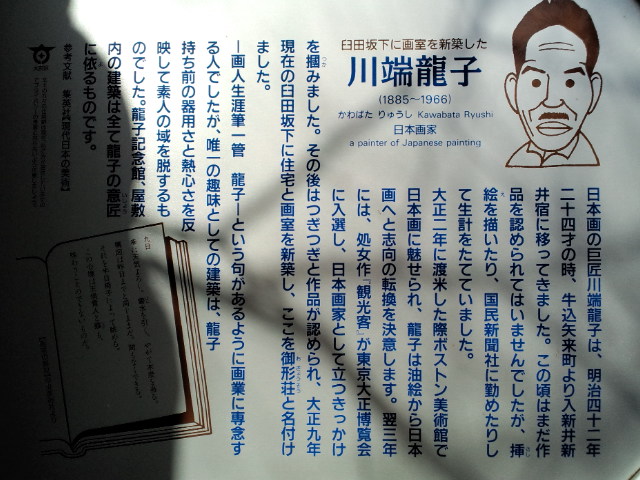 臼田坂下に画室を新築した
川端龍子
(1885～1966)
かわばた りゅうし Kawabata Ryushi
日本画家
a painter of Japanese painting
日本画の巨匠川端龍子は、明治四十二年
二十四才の時、牛込矢来町より入新井新
井宿に移ってきました。この頃はまだ作
品を認められてはいませんでしたが、挿
さし
絵を描いたり、国民新聞社に勤めたりし
て生計をたてていました。
大正二年に渡米した際ボストン美術館で
日本画に魅せられ、龍子は油絵から日本
画へと志向の転換を決意します。翌三年
には、処女作「観光客」が東京大正博覧会
に入選し、日本画家として立つきっかけ
を掴みました。その後はつぎつぎと作品が認められ、大正九年
つか
現在の臼田坂下に住宅と画室を新築し、ここを御形荘と名付け
ました。
―画人生涯筆一管 龍子―という句があるように画業に専念す
る人でしたが、唯一の趣味としての建築は、龍子
持ち前の器用さと熱心さを反
映して素人の域を脱するも
のでした。龍子記念館、屋敷
内の建築は全て龍子の意匠
いしょう
に依るものです。
よ
参考文献 集英社『現代日本の美術』